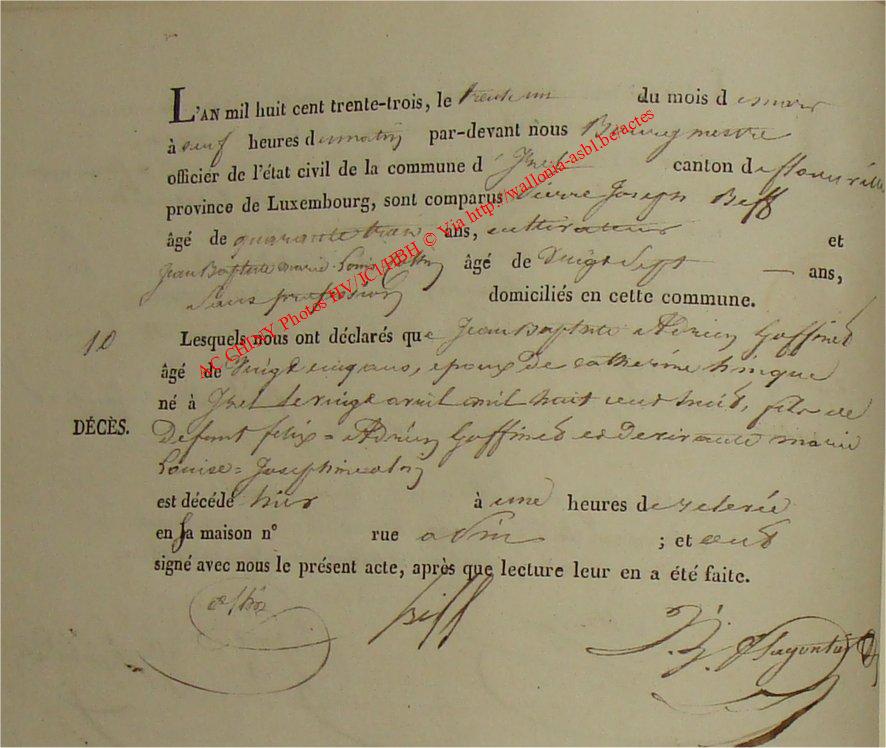 L'AN mil huit cent trente-trois, le trente un du mois d e mars
à neuf heures du matin par-devant nous Bourgmestre
officier de l'état civil de la commune d' Izel canton de florenville
province de Luxembourg, sont comparus Pierre Joseph Biff
âgé de quarante trois ans, cultivateur et
Jean Baptiste marie Louis âgé de Vingt Sept ans,
Sans profession domiciliés en cette commune.
10
Lesquels nous ont déclarés que Jean Baptiste Adrien Goffinet
âgé de Vingt cinq ans, epoux de catherine
né à Izel le vingt avril mil huit cent huit, fils de
DÉCÈS.
Defunt felix = Adrien Goffinet et de vivante marie
Louise = Josephine
est décédé hier à une heures de relevée
en sa maison n° rue ; et ont
signé avec nous le présent acte, après que lecture leur en a été faite.
Biff
AC CHINY Photos HV/JCl/HBH © Via http://wallonia-asbl.be/actes